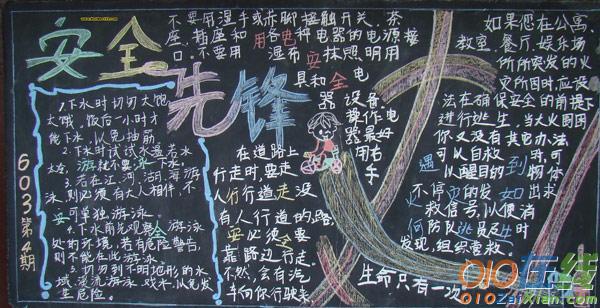 安全先锋
603第4期
1.下水时切勿太饱
太饿,饭后一小时才
能下水,以免抽筋。
2.下水时试试水温,若水
太冷,就不要游泳。
3.若在江、河、湖、海游
泳,则必须有人相伴,不
可单独游泳。
4.下水前先观察游泳
处的环境,若有危险警告,
则不能在此游泳。
5.切勿到不明地形的水
域 游泳、戏水,以免发
生危险。
不要用湿手或赤脚接触开关、
座、插座和用各种电器的电源接
口,不要用湿布抹照明用
具和
电
器设备,
操作电
器最好
用右
手
在道路上
行走时,要走
人行道,走没
有人行道的路,
必须要
靠路边行走。
不然,会有汽
车向你行驶来
如果您在公寓、
教室、餐厅、娱乐场
所所突发的火
灾所困时,应设
法在确保安全的前提下
进行逃生,当大火围困
你又没有其它办法
可以自救时,可
以醒目的物体
不停的发出求
救信号,以便消
防队员及时
发现,组织营救。
遇到
如何
生命只有一次
010在线
010zaixian.com